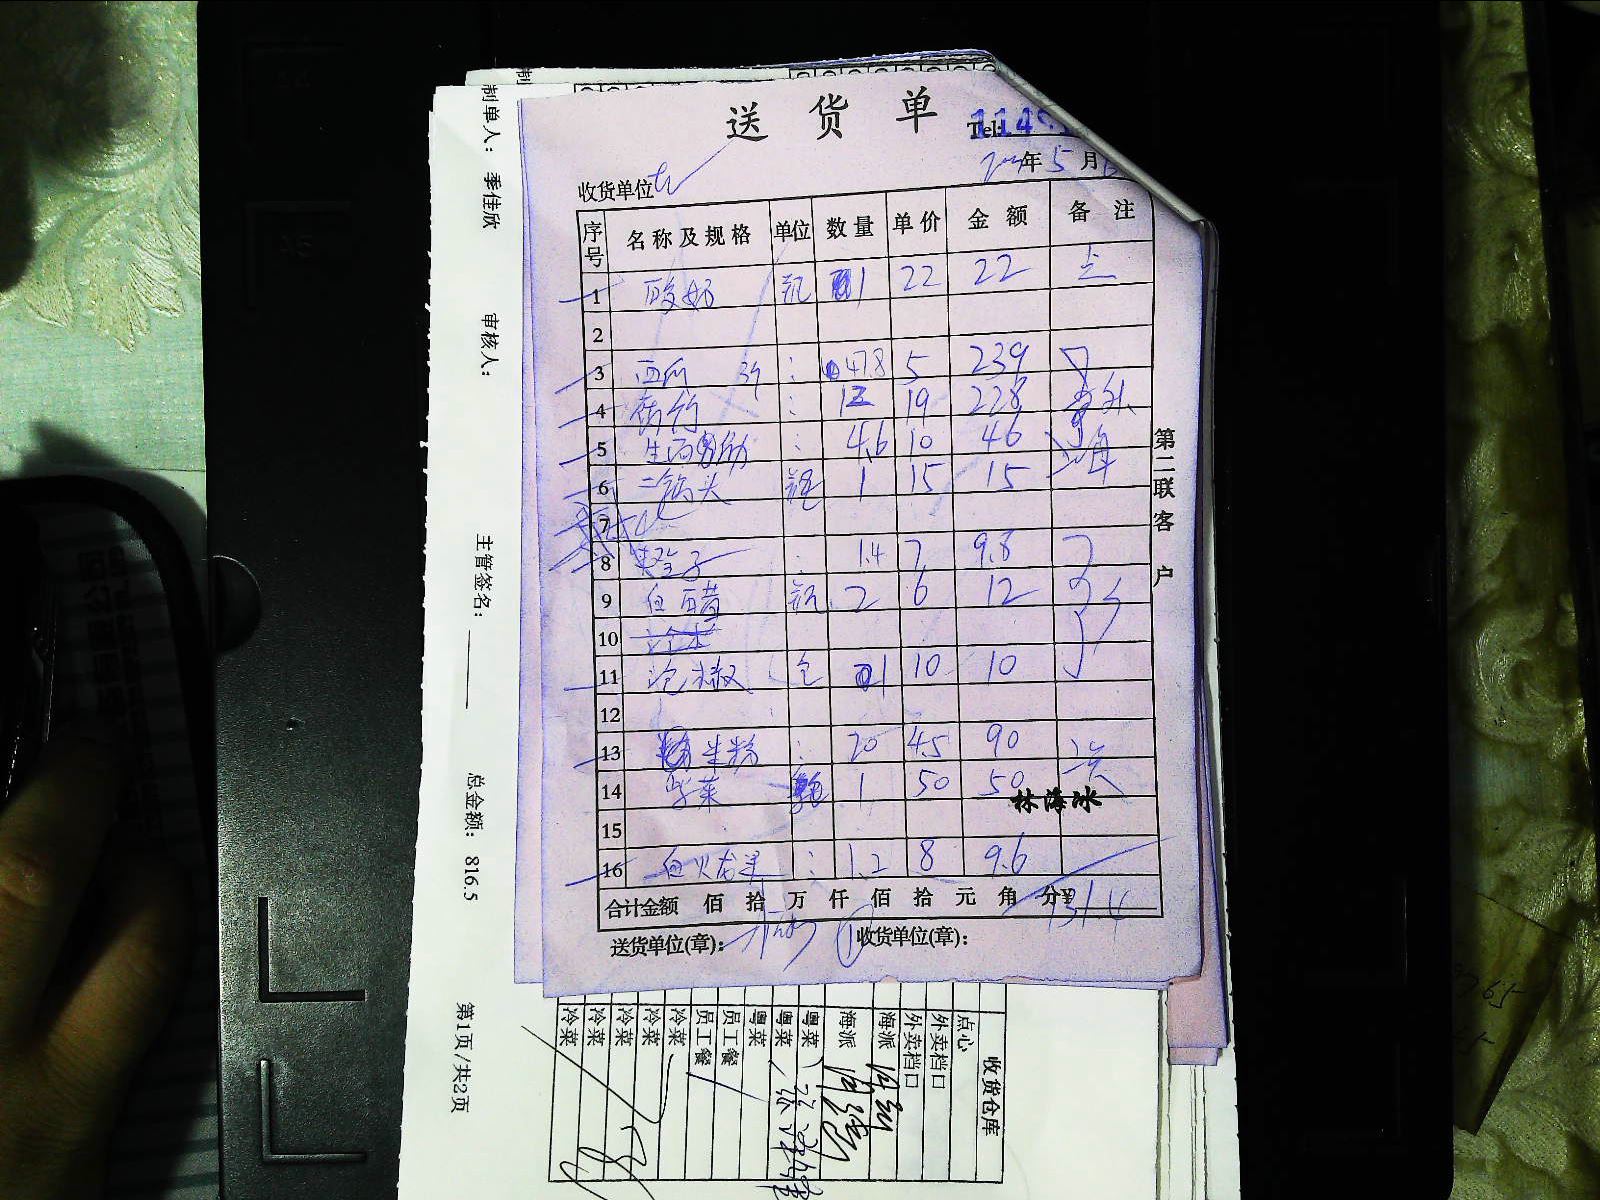 送货单
Tel:
年5月
收货单位
序号 名称及规格 单位 数量 单价 金额 备注
1 酸奶 瓶 1 22 22 点
2
3 西瓜 3个 : 47.8 5 239
4 腐竹 : 12 19 228
5 : 4.6 10 46 海
6 二锅头 瓶 1 15 15
7
8 橙子 : 1.4 7 9.8
9 白醋 瓶 2 6 12
10
11 泡椒 包 1 10 10
12
13 生粉 : 20 4.5 90
14 紫菜 1 50 50
林海冰
15
16 白火龙果 : 1.2 8 9.6
合计金额 佰 拾 万 仟 佰 拾 元 角 分¥ 731.4
送货单位(章): 收货单位(章):
第二联 客户
制单人: 季佳欣
审核人:
主管签名:
总金额: 816.5
第1页/共2页
收货仓库
点心
外卖档口
外卖档口
海派
海派
粤菜
粤菜
粤菜
员工餐
员工餐
冷菜
冷菜
冷菜
冷菜
冷菜